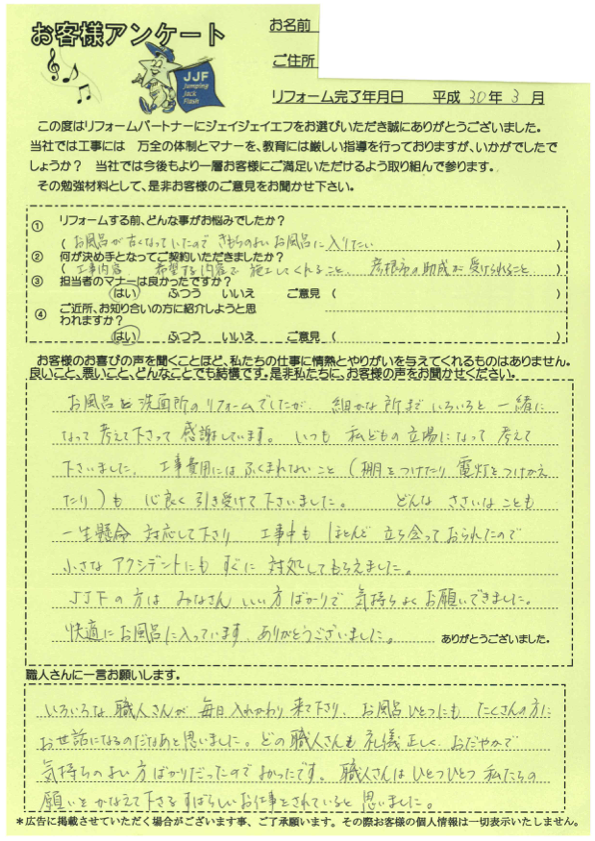 お客様アンケート
JJF
Jumping
Jack
Flash
お名前
ご住所
リフォーム完了年月日　平成 30年 3月
この度はリフォームパートナーにジェイジェイエフをお選びいただき誠にありがとうございました。
当社では工事には　万全の体制とマナーを、教育には厳しい指導を行っておりますが、いかがでしたで
しょうか？　当社では今後もより一層お客様にご満足いただけるよう取り組んで参ります。
その勉強材料として、是非お客様のご意見をお聞かせ下さい。
① リフォームする前、どんな事がお悩みでしたか？
( お風呂が古くなっていたので きもちのよいお風呂に入りたい )
② 何が決め手となってご契約いただきましたか？
( 工事内容、希望する内容で 施工してくれること、彦根市の助成が受けられること )
③ 担当者のマナーは良かったですか？
はい　ふつう　いいえ　ご意見 ( )
④ ご近所、お知り合いの方に紹介しようと思
われますか？
はい　ふつう　いいえ　ご意見 ( )
お客様のお喜びの声を聞くことほど、私たちの仕事に情熱とやりがいを与えてくれるものはありません。
良いこと、悪いこと、どんなことでも結構です。是非私たちに、お客様の声をお聞かせください。
お風呂と洗面所のリフォームでしたが、細かな所までいろいろと一緒に
なって考えて下さって感謝しています。いつも 私どもの立場になって考えて
下さいました。工事費用にはふくまれないこと（棚をつけたり 電灯をつけかえ
たり）も 心良く引き受けて下さいました。 どんな ささいなことも
一生懸命 対応して下さり 工事中も ほとんど 立ち会っておられたので
小さな アクシデントにも すぐに 対処してもらえました。
JJFの方は みなさん いい方ばかりで 気持ちよくお願いできました。
快適にお風呂に入っています。ありがとうございました。
ありがとうございました。
職人さんに一言お願いします。
いろいろな 職人さんが 毎日入れかわり 来て下さり、お風呂ひとつにも たくさんの方に
お世話になるのだなあと思いました。どの職人さんも礼儀正しく おだやかで
気持ちのよい方ばかりだったのでよかったです。職人さんはひとつひとつ 私たちの
願いをかなえて下さる すばらしいお仕事をされていると 思いました。
＊広告に掲載させていただく場合がございます事、ご了承願います。その際お客様の個人情報は一切表示いたしません。